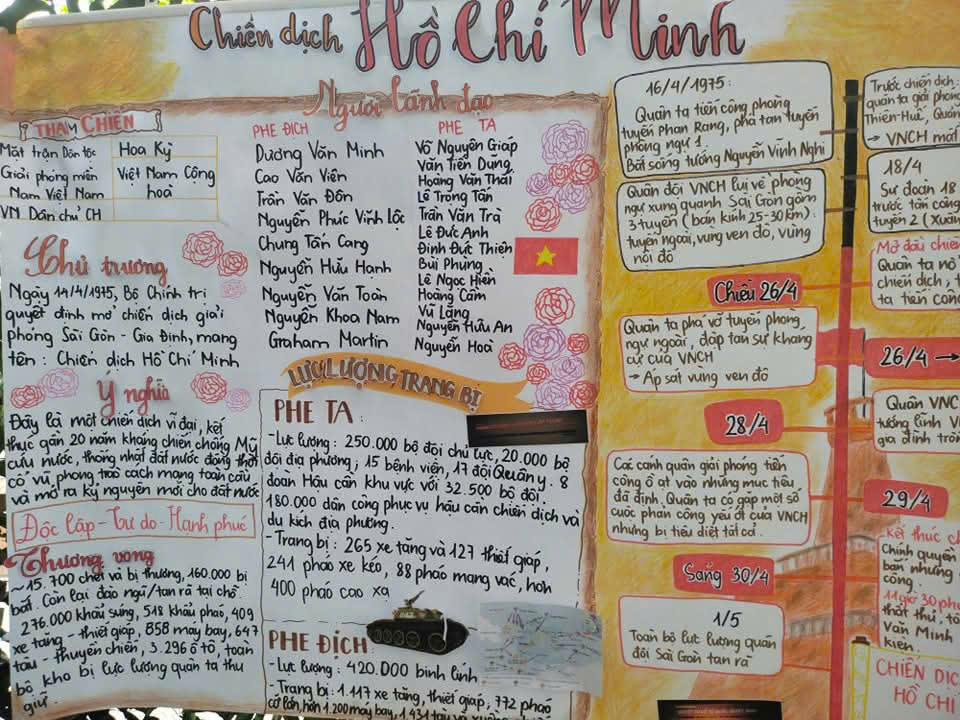 Chiến dịch Hồ Chí Minh
THAM CHIẾN
Mặt trận Dân tộc
Giải phóng miền
Nam Việt Nam
VN Dân chủ CH
Hoa Kỳ
Việt Nam Cộng
hoà
Chủ trương
Ngày 14/4/1975, Bộ Chính trị
quyết định mở chiến dịch giải
phóng Sài Gòn - Gia Định, mang
tên : Chiến dịch Hồ Chí Minh
Ý nghĩa
Đây là một chiến dịch vĩ đại, kết
thúc gần 20 năm kháng chiến chống Mỹ
cứu nước, thống nhất đất nước đồng thời
cổ vũ phong trào cách mạng toàn cầu
và mở ra kỷ nguyên mới cho đất nước
Độc lập - Tự do - Hạnh phúc
Thương vong
~ 15.700 chết và bị thương, 160.000 bị
bắt. Còn lại đào ngũ/tan rã tại chỗ.
276.000 khẩu súng, 518 khẩu pháo, 409
xe tăng - thiết giáp, 858 máy bay, 647
tàu - thuyền chiến, 3.296 ô tô, toàn
bộ kho bị lực lượng quân ta thu
giữ.
Người lãnh đạo
PHE ĐỊCH
Dương Văn Minh
Cao Văn Viên
Trần Văn Đôn
Nguyễn Phúc Vĩnh Lộc
Chung Tấn Cang
Nguyễn Hữu Hạnh
Nguyễn Văn Toàn
Nguyễn Khoa Nam
Graham Martin
PHE TA
Võ Nguyên Giáp
Văn Tiến Dũng
Hoàng Văn Thái
Lê Trọng Tấn
Trần Văn Trà
Lê Đức Anh
Đinh Đức Thiện
Bùi Phùng
Lê Ngọc Hiền
Hoàng Cầm
Vũ Lăng
Nguyễn Hữu An
Nguyễn Hoà
LỰC LƯỢNG TRANG BỊ
PHE TA :
- Lực lượng : 250.000 bộ đội chủ lực, 20.000 bộ
đội địa phương ; 15 bệnh viện, 17 đội Quân y. 8
đoàn Hậu cần khu vực với 32.500 bộ đội.
180.000 dân công phục vụ hậu cần chiến dịch và
du kích địa phương.
- Trang bị : 265 xe tăng và 127 thiết giáp,
241 pháo xe kéo, 88 pháo mang vác, hơn
400 pháo cao xạ
PHE ĐỊCH :
- Lực lượng : 420.000 binh lính
- Trang bị : 1.117 xe tăng, thiết giáp, 772 pháo
cỡ lớn, hơn 1.200 máy bay, 1.431 tàu và
16/4/1975 :
Quân ta tiến công phòng
tuyến Phan Rang, phá tan tuyến
phòng ngự 1
Bắt sống tướng Nguyễn Vĩnh Nghi
Quân đội VNCH lui về phòng
ngự xung quanh Sài Gòn gồm
3 tuyến (bán kính 25-30km) :
tuyến ngoài, vùng ven đô, vùng
nội đô
Chiều 26/4
Quân ta phá vỡ tuyến phòng
ngự ngoài, đập tan sự kháng
cự của VNCH
→ Áp sát vùng ven đô
28/4
Các cánh quân giải phóng tiến
công ồ ạt vào những mục tiêu
đã định. Quân ta có gặp một số
cuộc phản công yếu ớt của VNCH
nhưng bị tiêu diệt tất cả.
Sáng 30/4
1/5
Toàn bộ lực lượng quân
đội Sài Gòn tan rã
Trước chiến dịch :
quân ta giải phó
Thiên-Huế, Quản
→ VNCH mất
18/4
Sư đoàn 18
trước tấn công
tuyến 2 (Xuân
Mở đầu chiế
Quân ta nổ
chiến dịch,
ta tiến công
26/4 →
Quân VNC
tướng lĩnh V
gia đình trố
29/4
Kết thúc ch
Chính quyền
bắn nhưng
công.
11 giờ 30 phú
thất thủ, tổ
Văn Minh
kiện.
CHIẾN DỊC
HỒ CHÍ